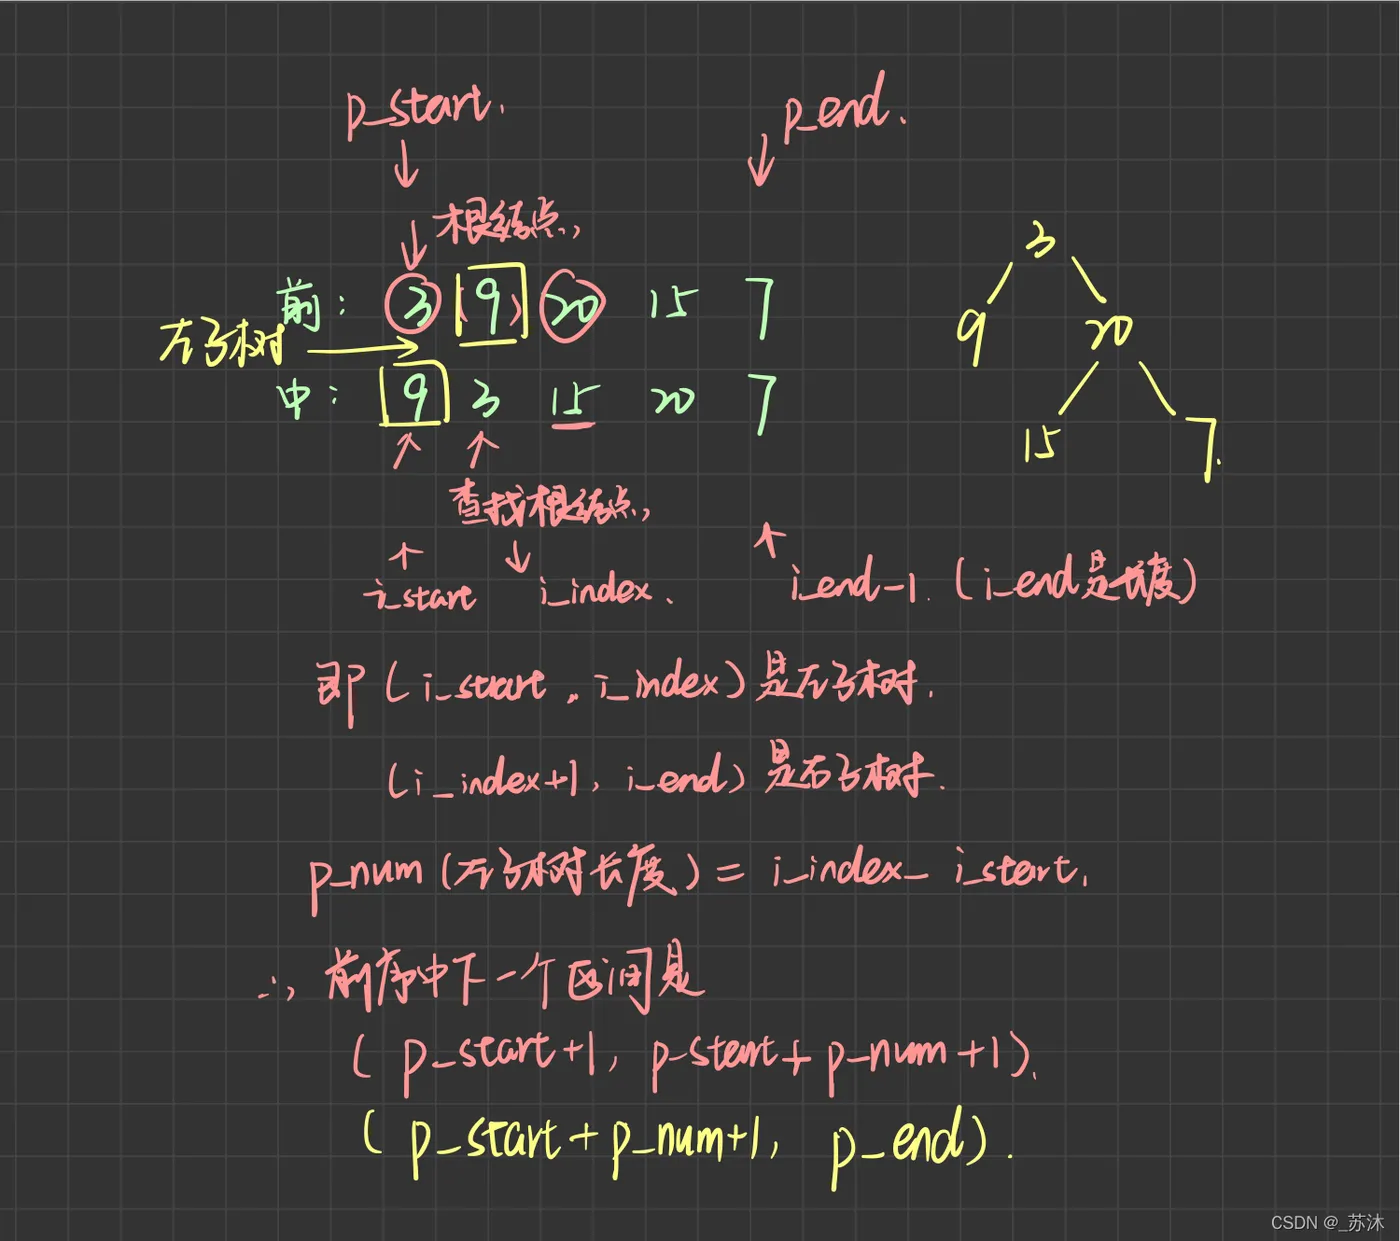 p_start.
p_end.
根结点,
前: 3 9 20 15 7
左子树
中: 9 3 15 20 7
3
9 20
15 7.
查找根结点,
i_start i_index. i_end-1. (i_end是长度)
即(i_start, i_index)是左子树.
(i_index+1, i_end)是右子树.
p_num(左子树长度) = i_index- i_start.
∴ 前序中下一个区间是
( p_start+1, p_start+ p_num+1).
( p_start+p_num+1, p_end).
CSDN @_苏沐